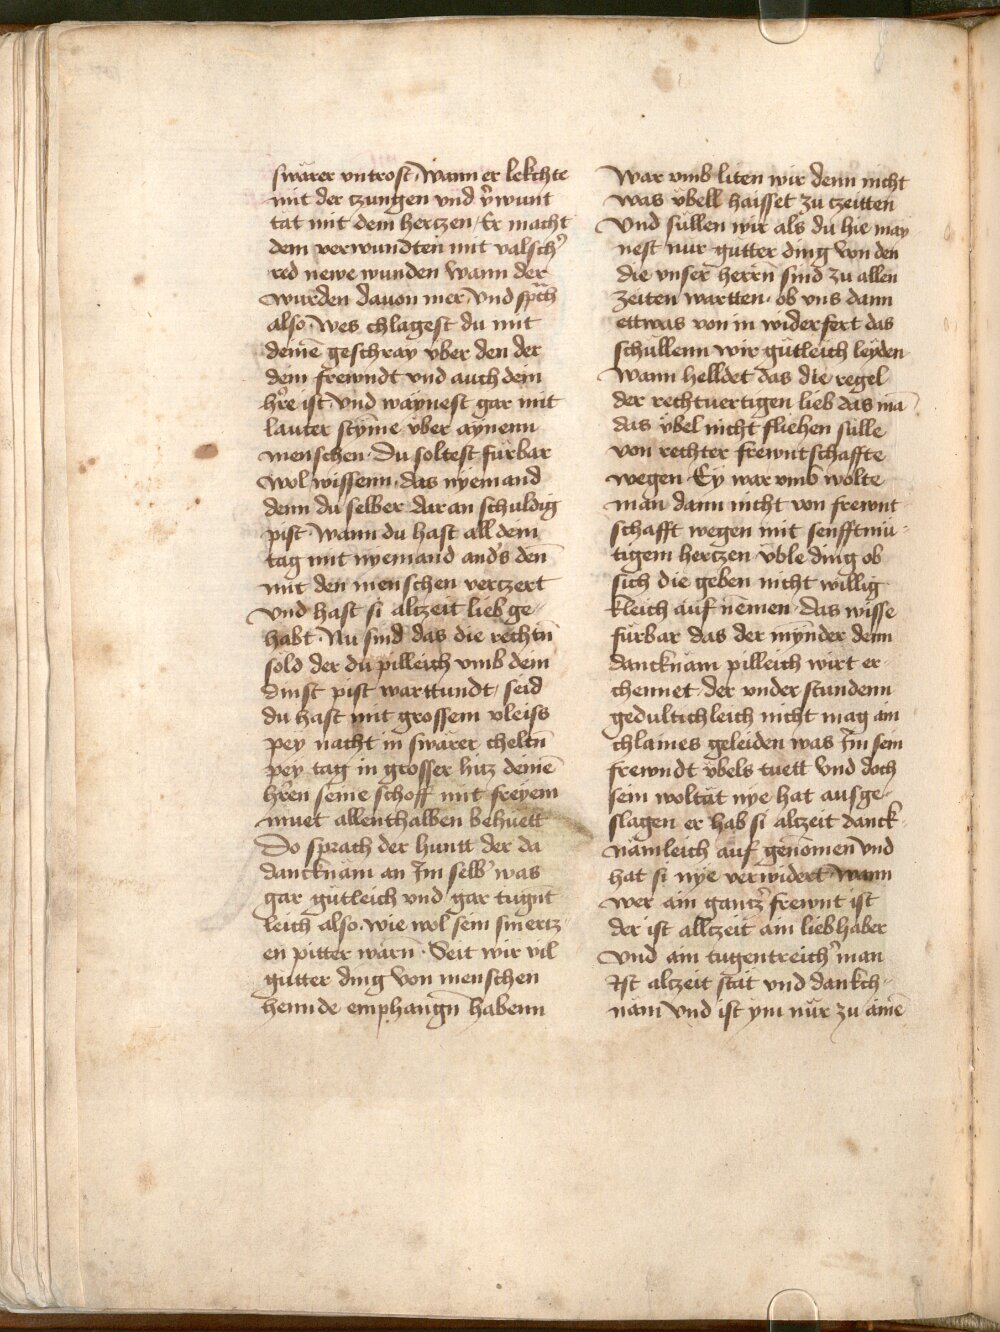 swärer vntrost, wann er lekchte
mit der czungen vnd v̓wunt
tat mit dem hertzen, Er macht
dem verwundten mit valsch᾽
red newe wunden wann der
wurden dauon mer, vnd sprach
also, wes chlagest du mit
deinē geschray vber den der
dein frewndt vnd auch dein
h᾽re ist, vnd waynest gar mit
lauter stym̄e vber aynenn
menschen. Du soltest fürbar
wol wissenn, das nyemand
denn du selber daran schuldig
pist, wann du hast all dein
tag mit nyemand and᾽s den̄
mit den menschen verczert
vnd hast si alczeit lieb ge-
habt. Nu sind das die rechtn̄
sold der du pilleich vmb dein
dinst pist warttundt, seid
du hast mit grossem vleiss
pey nacht in swärer cheltn̄
pey tag in grosser hitz deinē
h᾽ren seine schoff mit freyem
muet allenthalben behuett
Do sprach der huntt der da
dancknäm an Im selb᾽ was
gar gütleich vnd gar tugnt
leich also, wie wol sein smertz
en pitter warn̄. Seit wir vil
gutter ding von menschen
hennde emphangn̄ habenn
War vmb liten wir denn nicht
was vbell haisset zu czeitten
vnd süllen wir als du hie may
nest nur gutter ding von den
die vnser herrn sind zu allen
zeiten wartten, ob vns dann
ettwas von in widerfert das
schüllenn wir gütleich leyden
wann helldet das die regel
der rechtuertigen lieb das mā
das vbel nicht fliehen sülle
von rechter frewntschaffte
wegen. Ey war vmb wolte
man dann nicht von frewnt-
schafft wegen mit senfftmü-
tigem hertzen vble ding ob
sich die geben nicht willig
kleich auf nemen. das wisse
fürbar das der mynder denn
dancknäm pilleich wirt er-
chennet, der vnder stundenn
gedultichleich nicht mag ain
chlaines geleiden was Im sein
frewndt vbels tuett vnd doch
sein woltat nye hat ausge-
slagen er hab si alczeit danck-
nämleich auf genomen vnd
hat si nye verwidert wann
wer ain gantz᾽ frewnt ist
der ist allczeit ain liebhaber
vnd ain tugentreich᾽ man
Ist alczeit stät vnd dankch-
näm vnd ist ym nür zu ainē